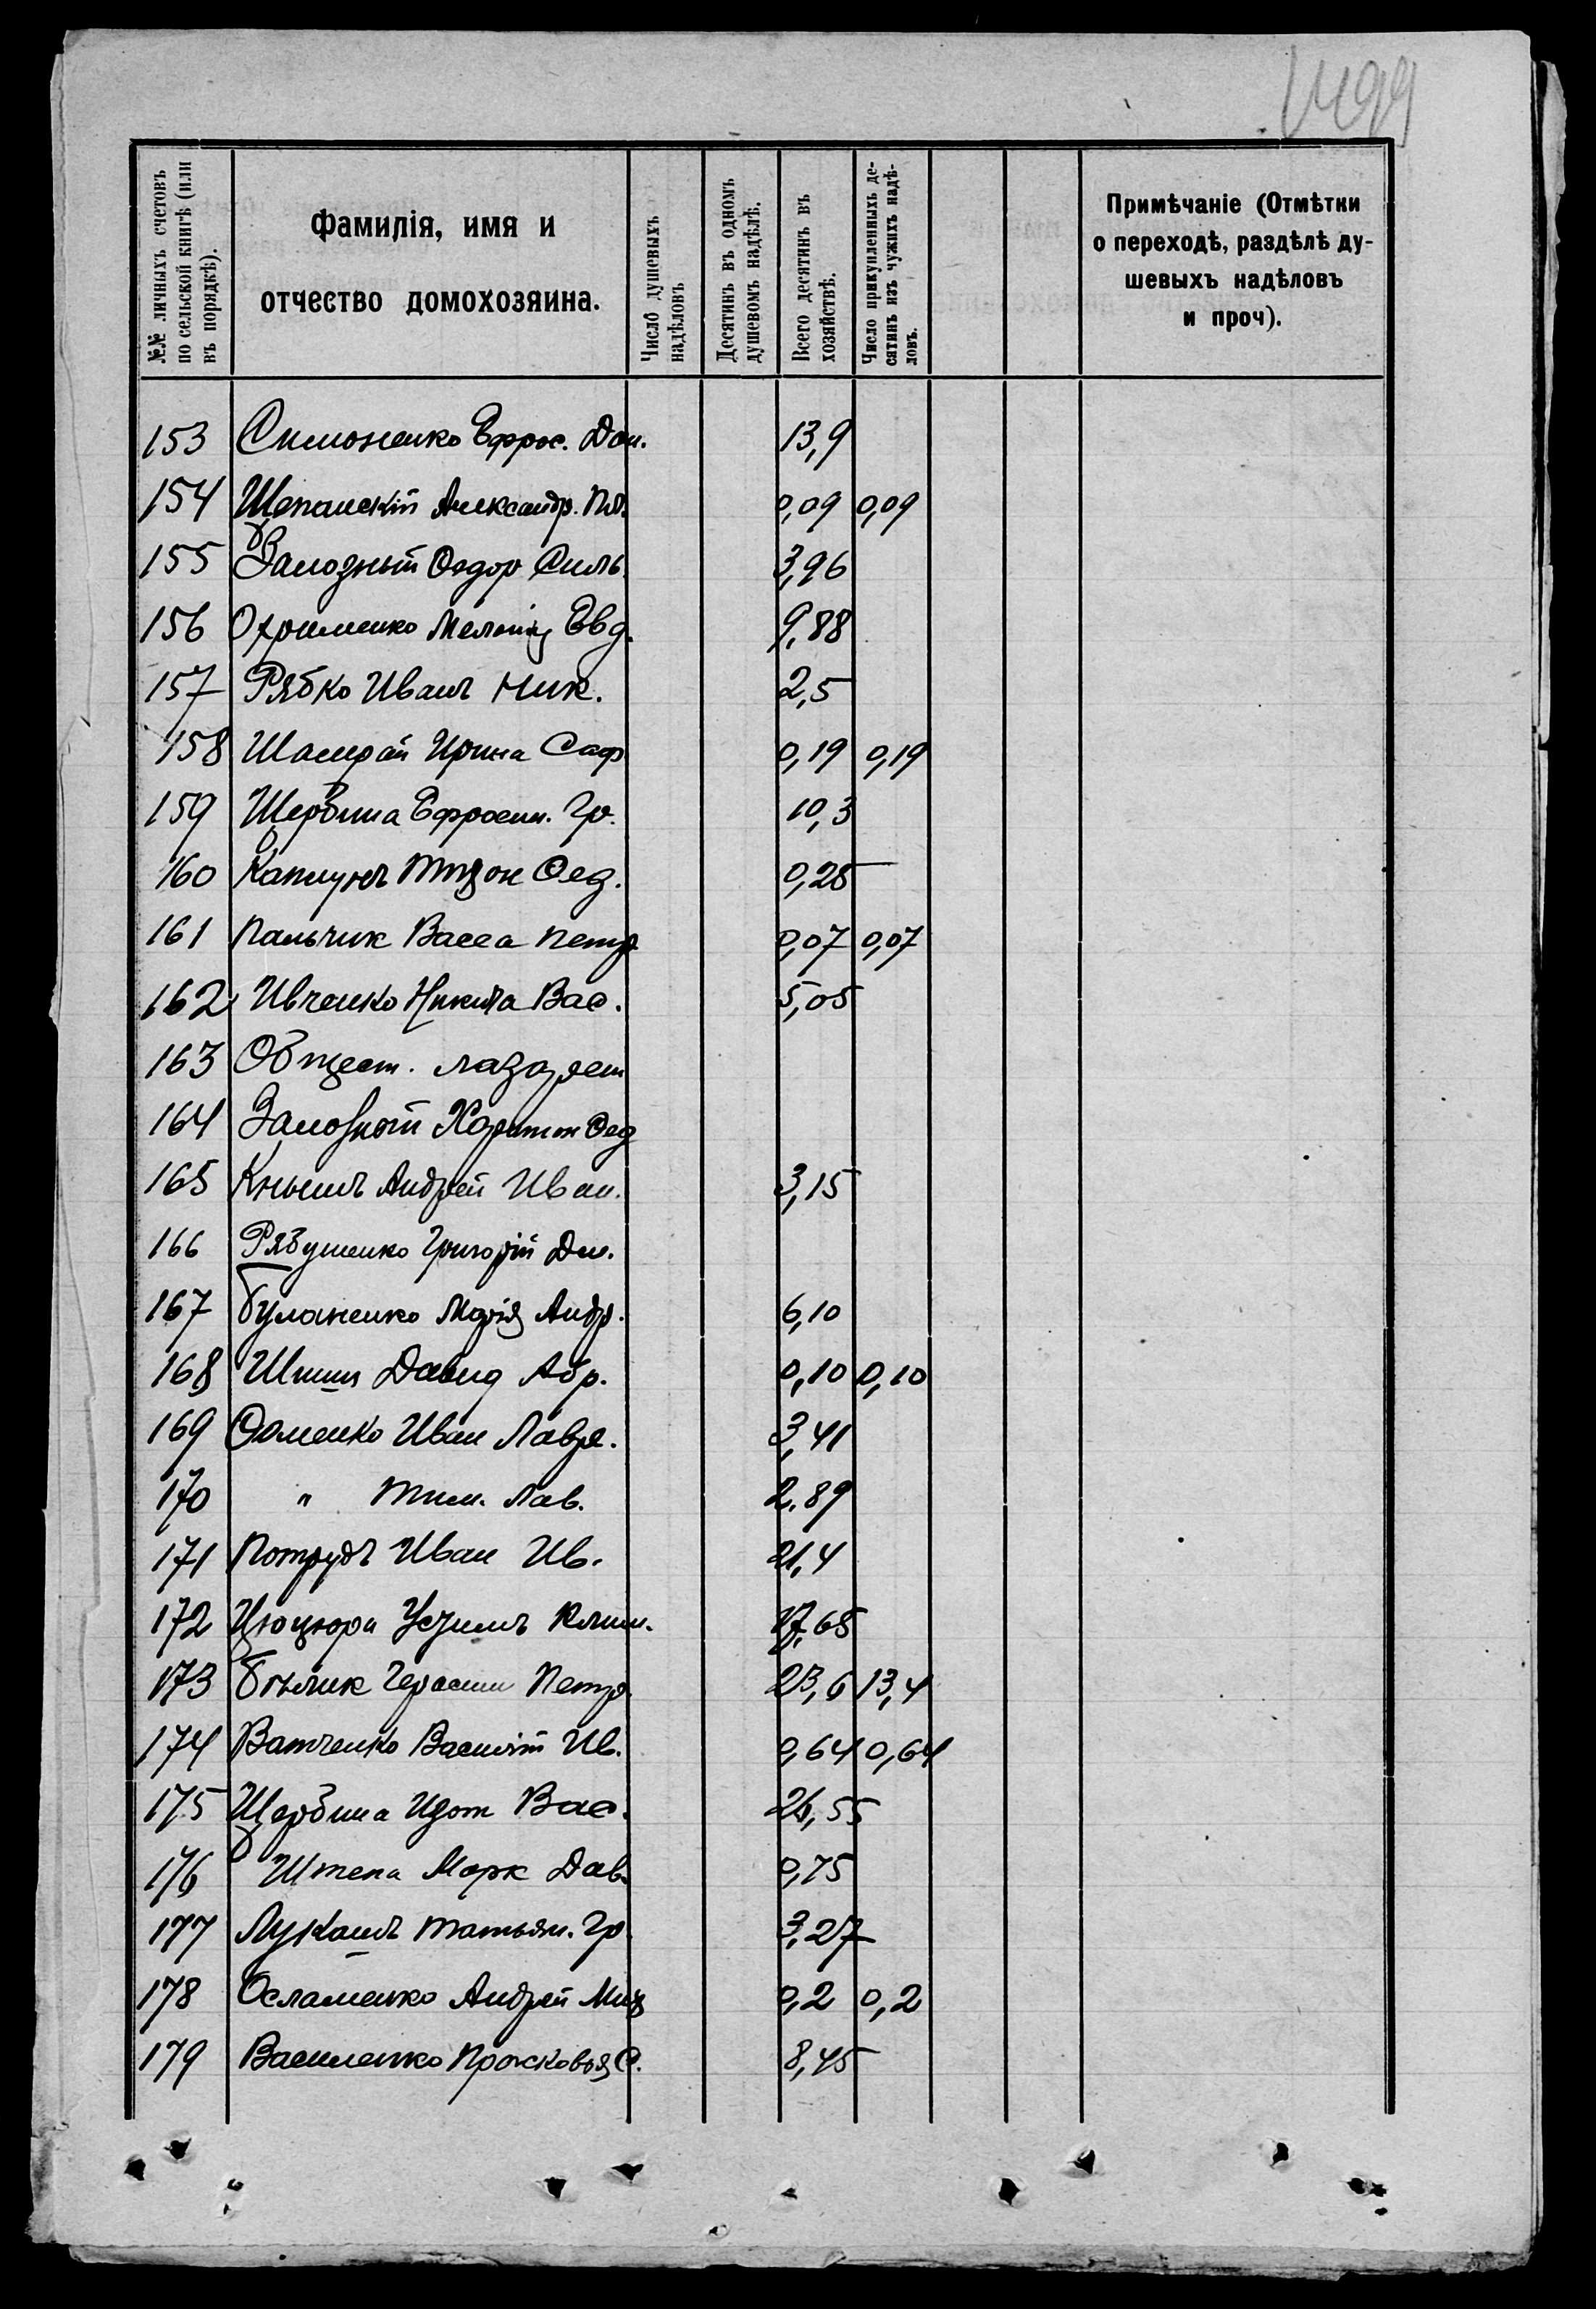 1499
№№ личныхъ счетовъ по сельской книгѣ (или въ порядкѣ).
Фамилія, имя и отчество домохозяина.
Число душевыхъ надѣловъ
Десятинъ въ одномъ душевомъ надѣлѣ.
Всего десятинъ въ хозяйствѣ.
Число прикупленныхъ десятинъ изъ чужихъ надѣловъ.
Примѣчаніе (Отмѣтки о переходѣ, раздѣлѣ душевыхъ надѣловъ и проч).
153 Симоненко Ефрос. 13,9
154 Щепанскій Александр. 0,09 0,09
155 Замозный Ѳедор Силь. 3,96
156 Охрименко Меланія Евд. 9,88
157 Рябко Иванъ Ник. 2,5
158 Шамрай Ирина Саф 0,19 0,19
159 Щербина Ефросин. Гр. 10,3
160 Капшукъ Тихон Ѳед. 0,25
161 Пальчик Васса Петр 0,07 0,07
162 Ивченко Никита Вас. 5,05
163 Общест. лазарет
164 Замозный Харитон Ѳед
165 Кнышъ Андрей Иван. 3,15
166 Рябушенко Григорій Дм.
167 Буланенко Марія Андр. 6,10
168 Давид Абр. 0,10 0,10
169 Иван Лавр. 3,41
170 " Тим. Лав. 2.89
171 Потрудъ Иван Ив. 21,4
172 Цюцюра Устимъ Клим. 17,65
173 Бѣлик Герасим Петр. 23,6 13,4
174 Ватченко Василій Ив. 0,64 0,64
175 Щербина Изот Вас. 26,55
176 Штепа Марк Дав. 0,75
177 Лукашъ Татьян. Гр 3,27
178 Осламенко Андрей Мих 0,2 0,2
179 Василенко Прасковья С. 8,45